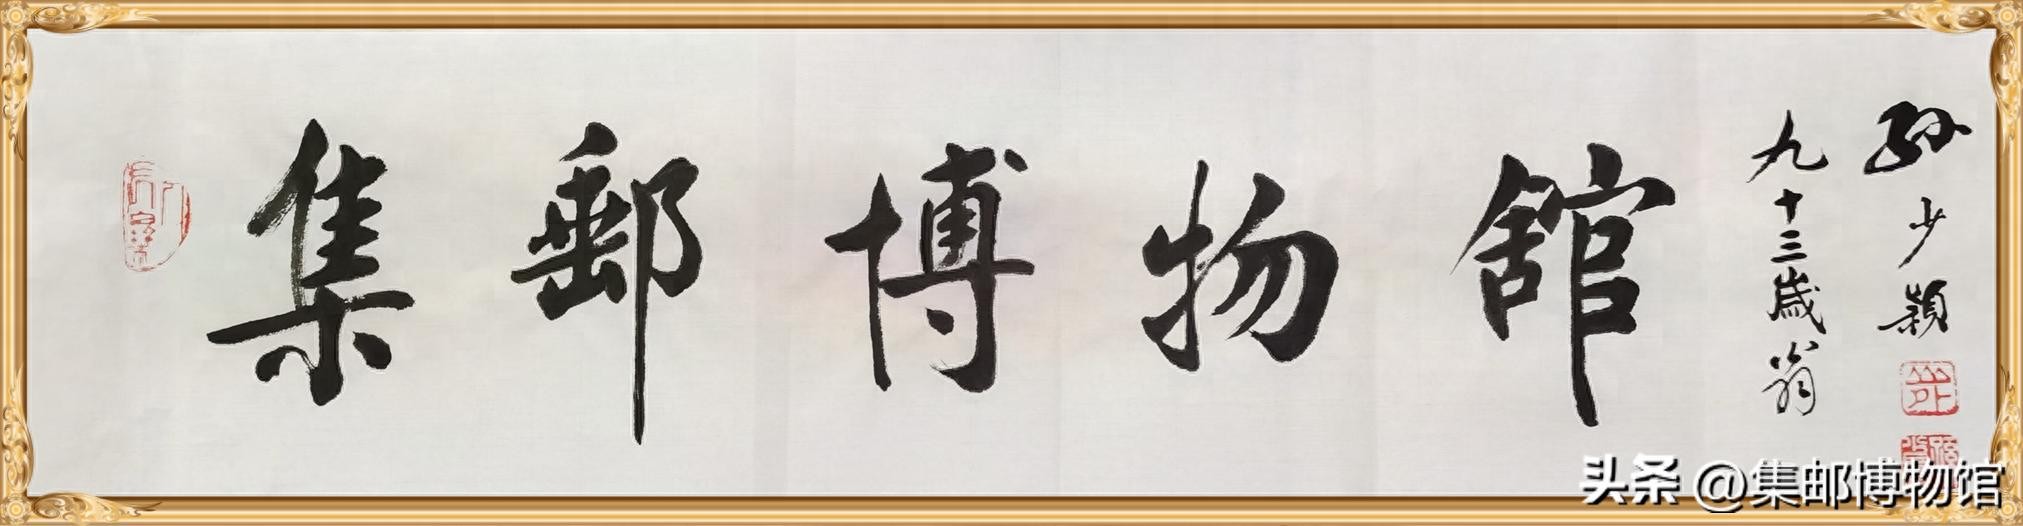 集郵博物舘
孙少颖
九十三歲翁
头条 @集邮博物馆